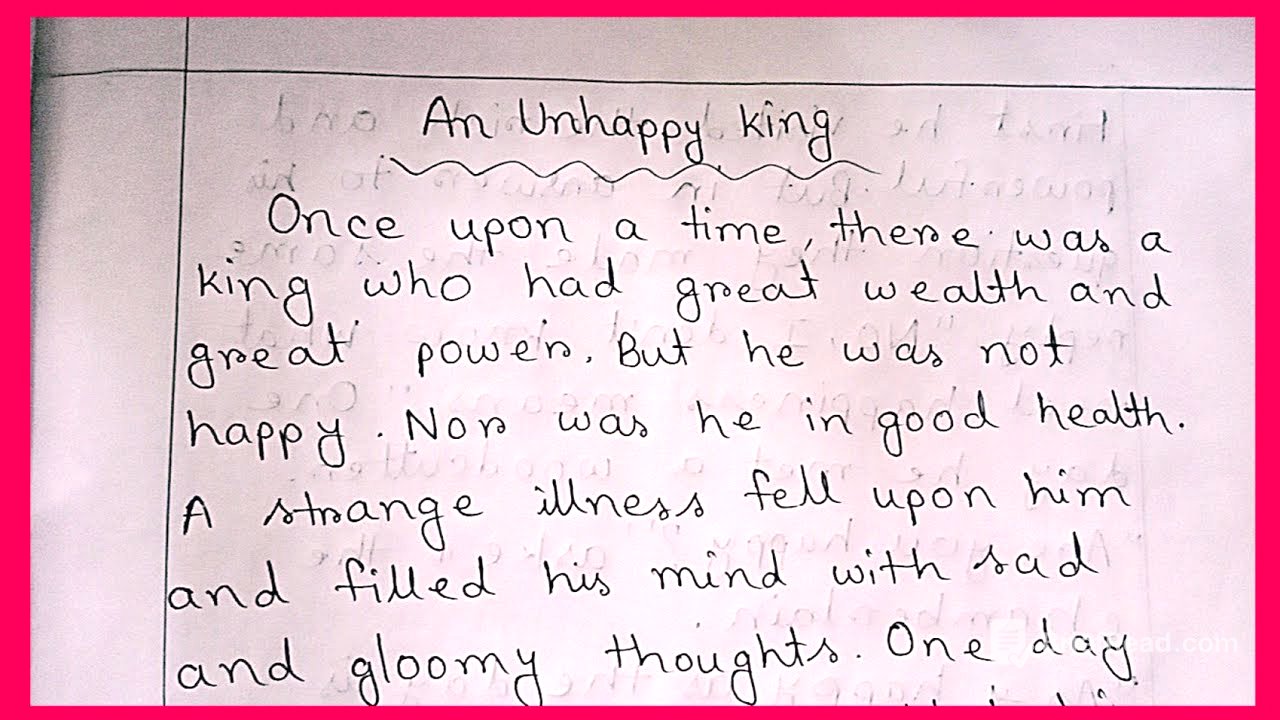 An Unhappy King
Once upon a time, there was a
king who had great wealth and
great power. But he was not
happy. Nor was he in good health.
A strange illness fell upon him
and filled his mind with sad
and gloomy thoughts. One day